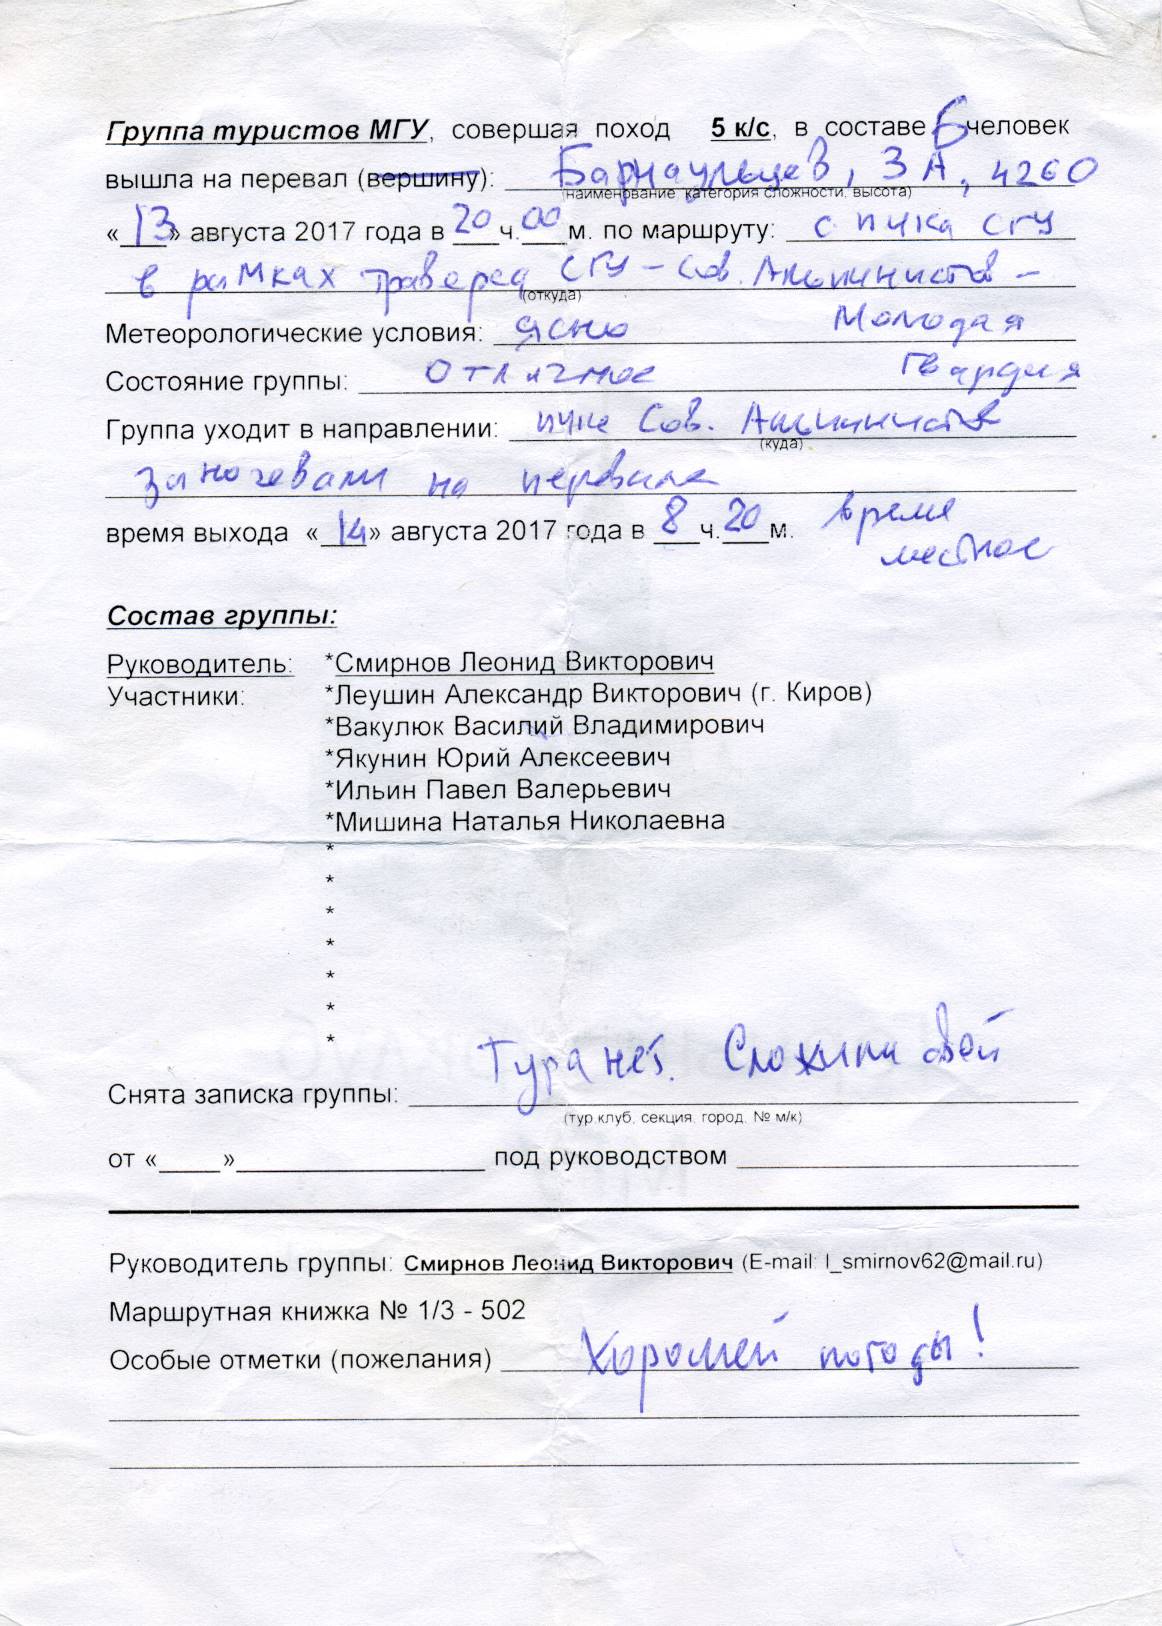 Группа туристов МГУ, совершая поход 5 к/с, в составе 6 человек
вышла на перевал (вершину): Барнаульцев, 3А, 4260
(наименование категория сложности, высота)
«13» августа 2017 года в 20 ч. 00 м. по маршруту: с пика СГУ
в рамках траверса СГУ – Сов. Альпинистов –
(откуда)
Молодая
Метеорологические условия: ясно
Гвардия
Состояние группы: отличное
Группа уходит в направлении: пика Сов. Альпинистов
(куда)
заночевали на перевале
время выхода «14» августа 2017 года в 8 ч. 20 м. время
местное
Состав группы:
Руководитель: *Смирнов Леонид Викторович
Участники: *Леушин Александр Викторович (г. Киров)
*Вакулюк Василий Владимирович
*Якунин Юрий Алексеевич
*Ильин Павел Валерьевич
*Мишина Наталья Николаевна
*
*
*
*
*
*
*
Снята записка группы: Тура нет. Сложили свой
(тур.клуб, секция, город, № м/к)
от «____»________________ под руководством ________________
Руководитель группы: Смирнов Леонид Викторович (E-mail: l_smirnov62@mail.ru)
Маршрутная книжка № 1/3 - 502
Особые отметки (пожелания) Хорошей погоды!